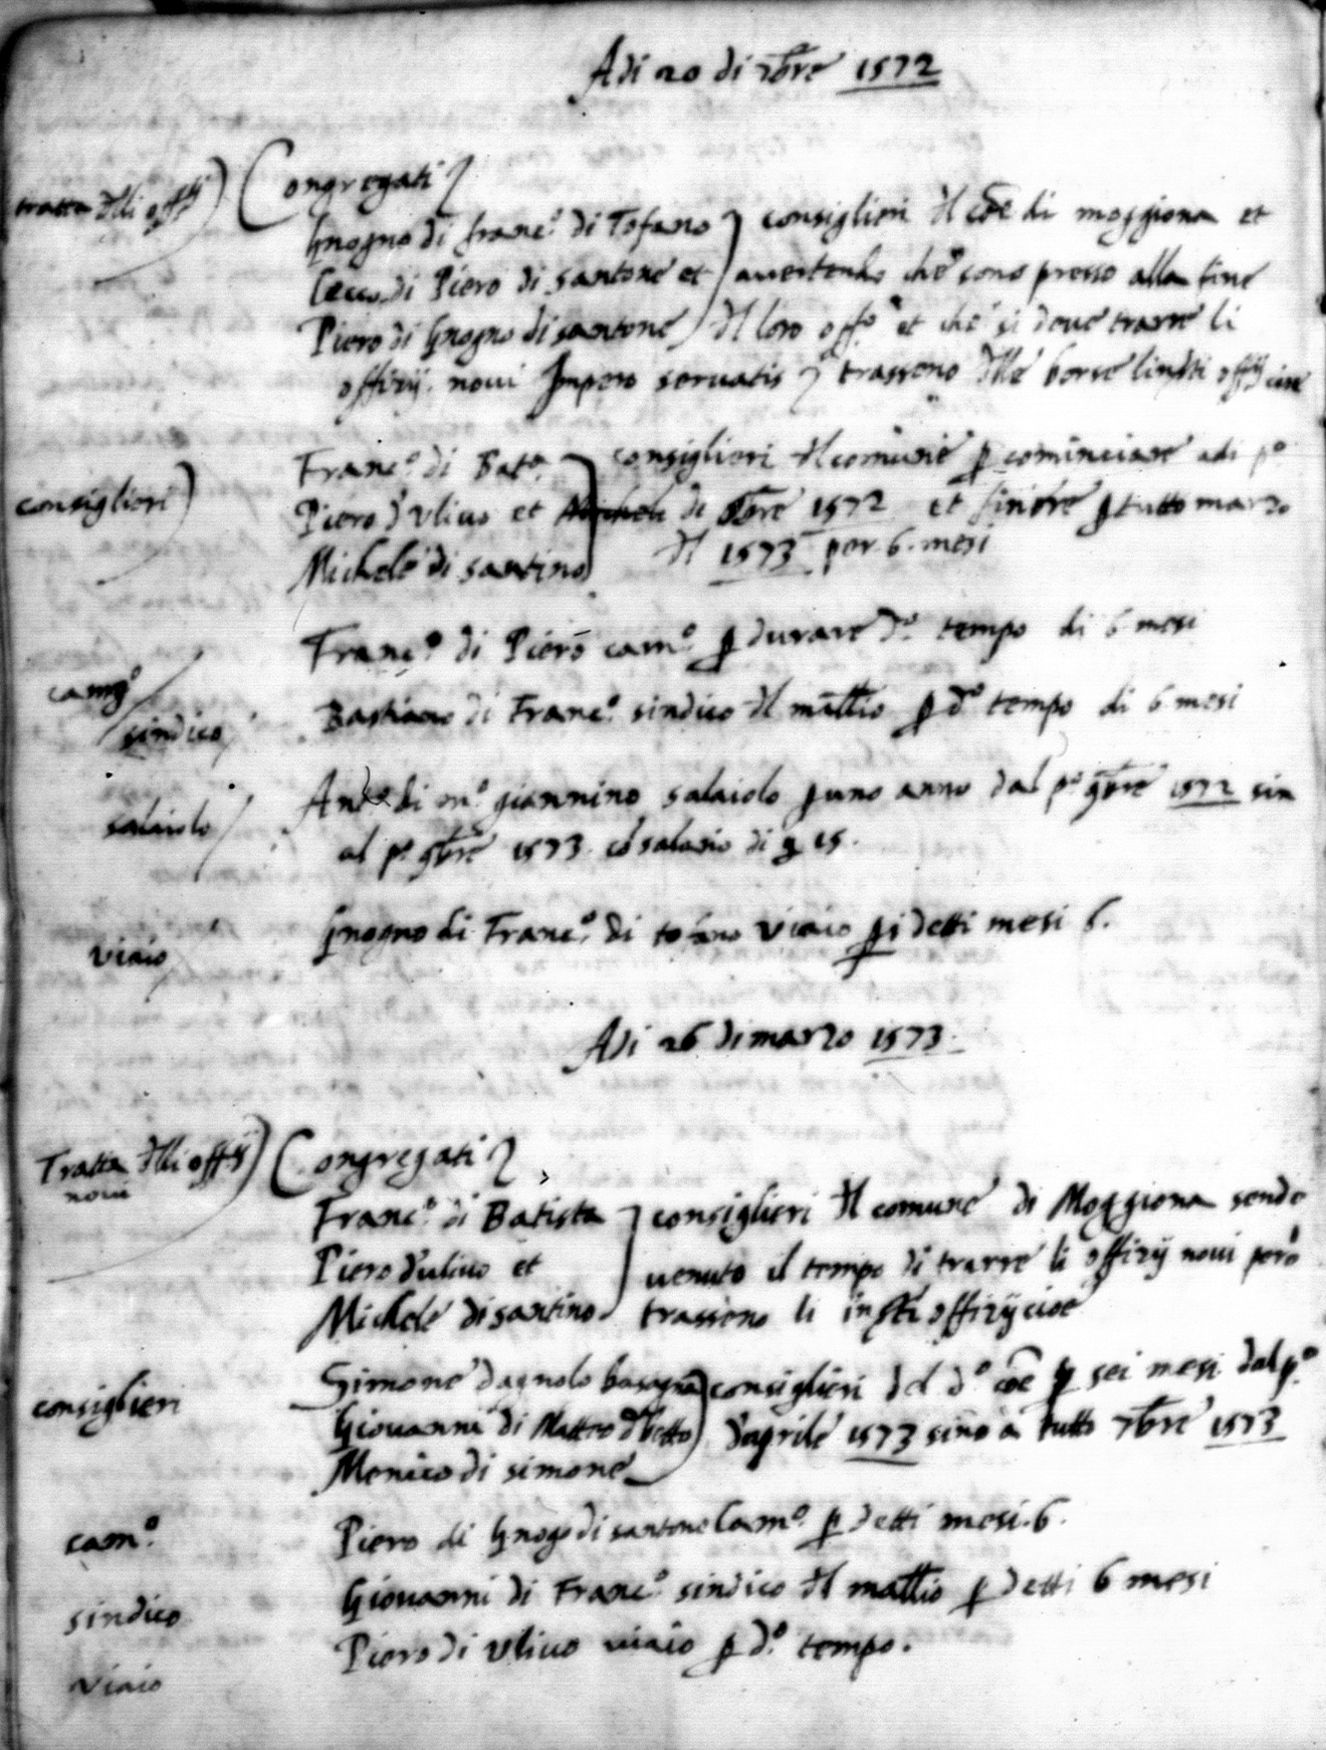 Adi 20 di 7bre 1572
tratta delli offitij
Congregati
Gnogno di franc.º di Tofano consiglieri del coe di moggiona et
Cecco di Piero di santone et avertendo che sono presso alla fine
Piero di Gnogno di santone del loro off.º et che si deve trarre li
offizij novi Impero servatis trasseno delle borse linditi offzij cioe
consiglieri
Franc.º di Bat.ª consiglieri del comune p cominciare adi p.º
Piero d'ulivo et Michele de 8bre 1572 et finire p tutto marzo
Michele di santino del 1573 per 6. mesi
camg.º
Franc.º di Piero cam.º p durare d.º tempo di 6 mesi
sindico
Bastiano di Franc.º sindico del mallio p d.º tempo di 6 mesi
salaiolo
And.ª di m.º giannino salaiolo p uno anno dal p.º 9bre 1572 sin
al p.º 9bre 1573 co salario di 15.
viaio
Gnogno di Franc.º di tofano viaio p i detti mesi 6.
Adi 26 di marzo 1573.
Tratta delli offitij
novi
Congregati
Franc.º di Batista consiglieri del comune di Moggiona sendo
Piero d'ulivo et venuto il tempo di trarre li offizij novi però
Michele di santino trasseno li infti offizij cioe
consiglieri
Simone d'agnolo consiglieri del d.º coe p sei mesi dal p.º
Giovanni di Matteo di betto d'aprile 1573 sino a tutto 7bre 1573
Menico di simone
cam.º
Piero di Gnogo di santone Cam.º p detti mesi. 6.
sindico
Giovanni di Franc.º sindico del mallio p detti 6 mesi
viaio
Piero di Ulivo viaio p d.º tempo.